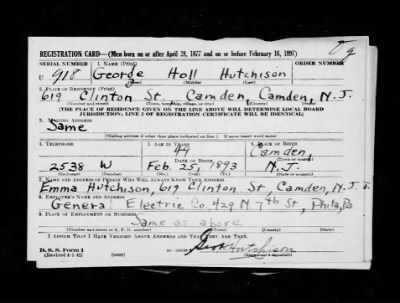 REGISTRATION CARD—(Men born on or after April 28, 1877 and on or before February 16, 1897)
SERIAL NUMBER 1. NAME (Print) ORDER NUMBER
U 918 George Holl Hutchison
(First) (Middle) (Last)
2. PLACE OF RESIDENCE (Print)
619 Clinton St. Camden, Camden, N.J.
(Number and street) (Town, township, village, or city) (County) (State)
[THE PLACE OF RESIDENCE GIVEN ON THE LINE ABOVE WILL DETERMINE LOCAL BOARD
JURISDICTION; LINE 2 OF REGISTRATION CERTIFICATE WILL BE IDENTICAL]
3. MAILING ADDRESS
Same
(Mailing address if other than place indicated on line 2. If same insert word same)
4. TELEPHONE 5. AGE IN YEARS 6. PLACE OF BIRTH
49 Camden,
DATE OF BIRTH (Town or county)
2538 W Feb. 25, 1893 N.J.
(Exchange) (Number) (Mo.) (Day) (Yr.) (State or country)
7. NAME AND ADDRESS OF PERSON WHO WILL ALWAYS KNOW YOUR ADDRESS
Emma Hutchison, 619 Clinton St, Camden, N.J.
8. EMPLOYER'S NAME AND ADDRESS
General Electric Co. 429 N 7th St, Phila, Pa
9. PLACE OF EMPLOYMENT OR BUSINESS
Same as above
(Number and street or R. F. D. number) (Town) (County) (State)
I AFFIRM THAT I HAVE VERIFIED ABOVE ANSWERS AND THAT THEY ARE TRUE.
D. S. S. Form 1
(Revised 4-1-42) Hutchison